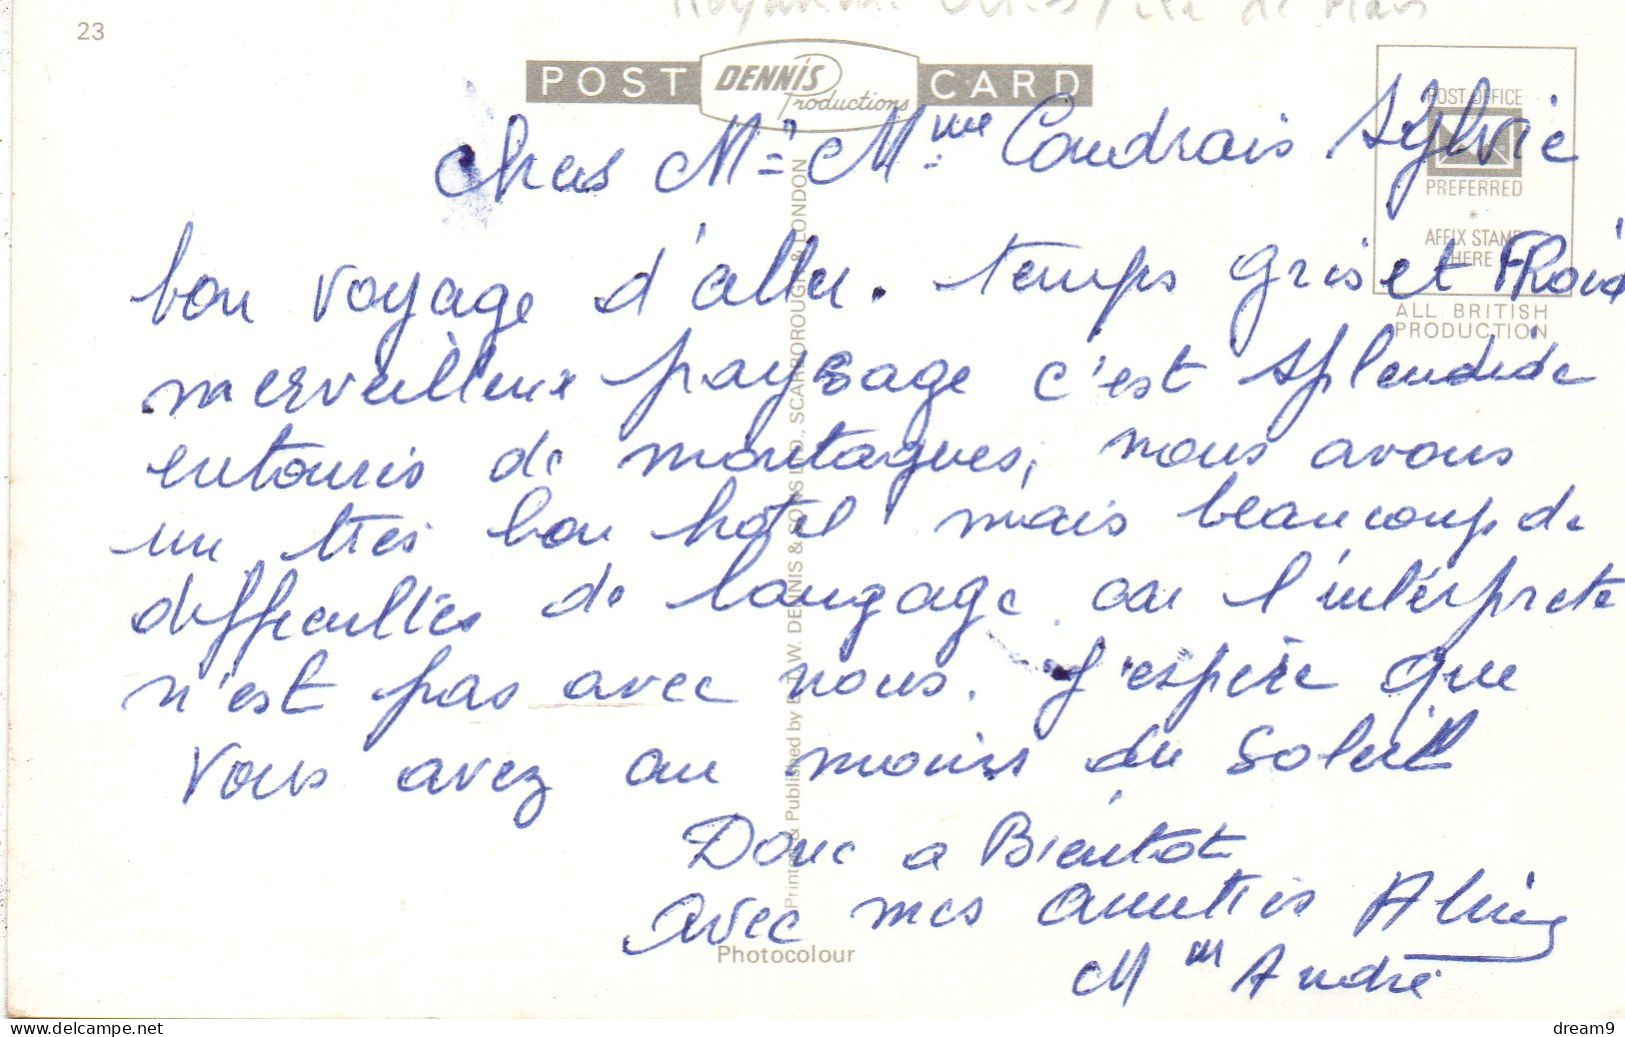 23
Royaume Unis / île de Man
POST DENNIS Productions CARD
POST OFFICE
PREFERRED
*
AFFIX STAMP
HERE
ALL BRITISH
PRODUCTION
Chers Mr Mme Coudrais Sylvie
bon voyage d'aller. temps gris et FRoid
merveilleux paysage c'est splendide
entouris de montagnes, nous avons
un très bon hôtel mais beaucoup de
difficultés de langage car l'intérprete
n'est pas avec nous. J'espère que
vous avez au moins du Soleil
Donc a Bientot
avec mes amitiés
Mm André
Printed & Published by E.T.W. DENNIS & SONS LTD., SCARBOROUGH & LONDON
Photocolour
https://www.delcampe.net
dream9